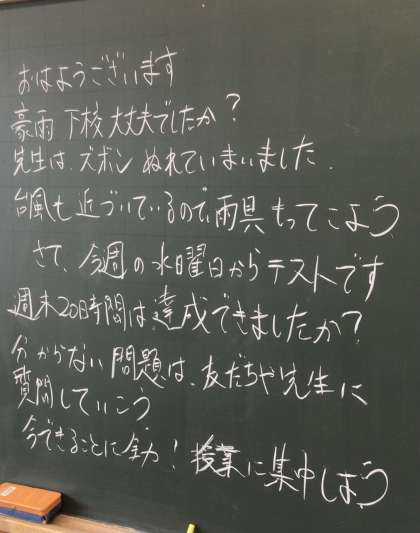 おはようございます
豪雨 下校 大丈夫でしたか?
先生は、ズボン ぬれていまいました.
台風も 近づいているので、雨具 もってこよう
さて、今週の水曜日からテストです
週末20時間は、達成できましたか?
分からない問題は、友だちや先生に
質問していこう
今できることに全力! 授業に集中しよう